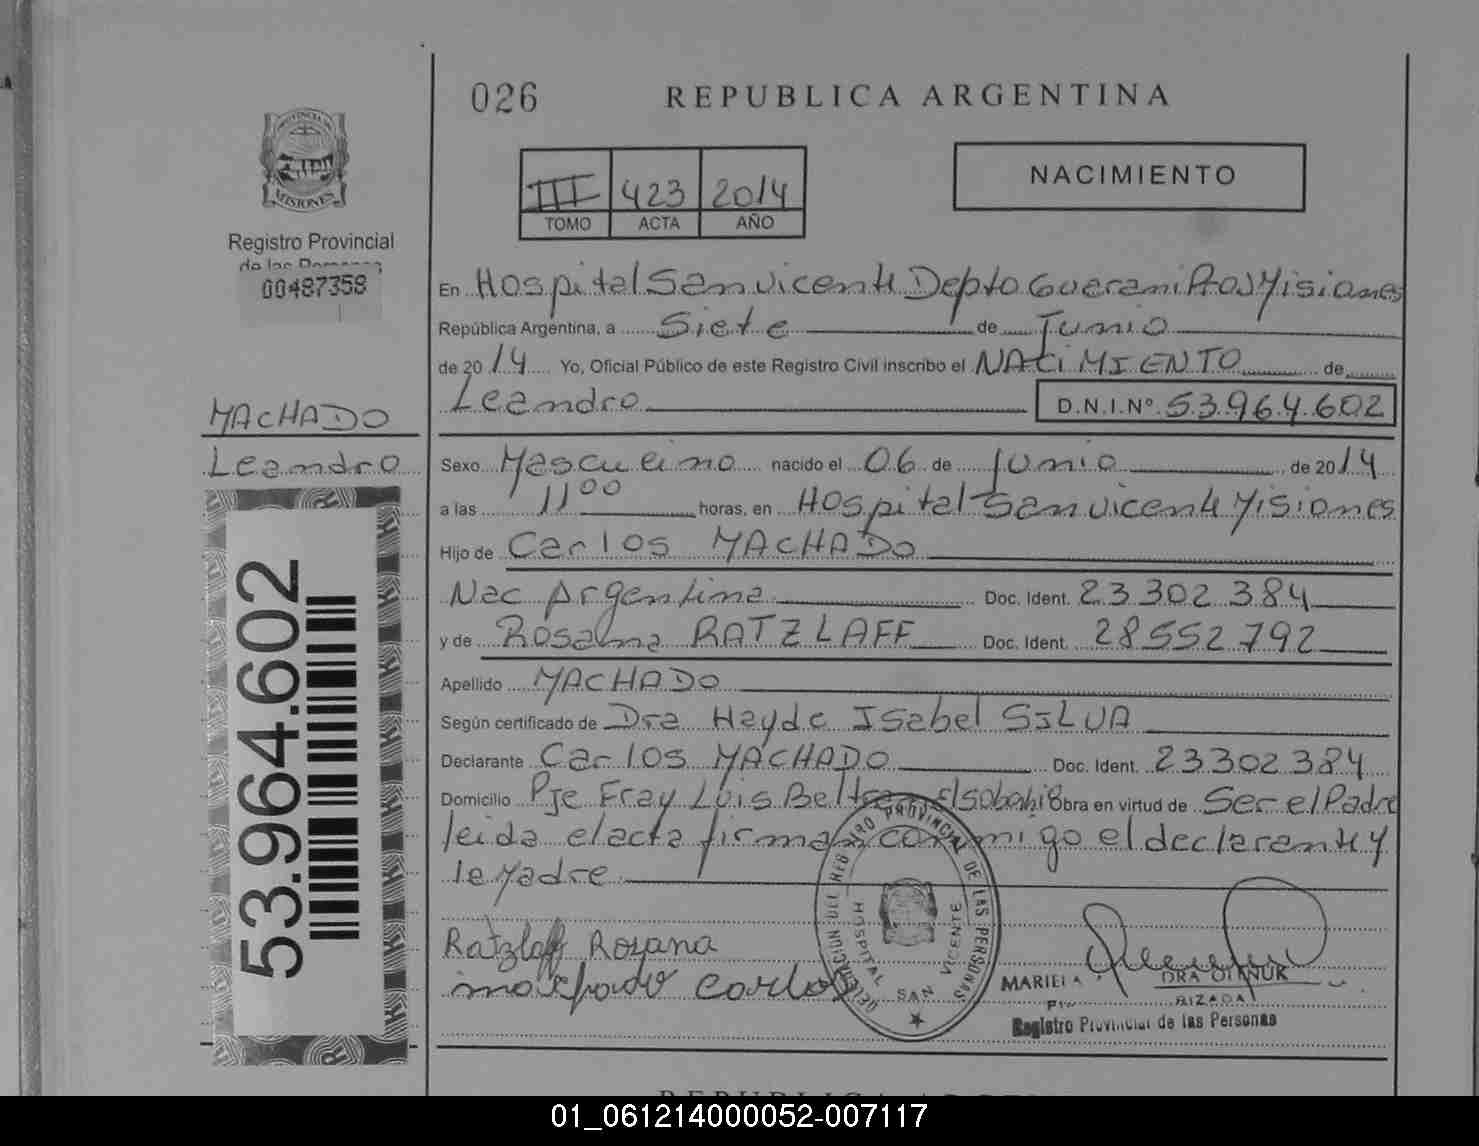 026
REPUBLICA ARGENTINA
III 423 2014
TOMO ACTA AÑO
NACIMIENTO
PROVINCIA DE
MISIONES
Registro Provincial
de las Personas
00487358
MACHADO
Leandro
53.964.602
En Hospital San Vicente Depto Guarani Prov Misiones
República Argentina, a Siete de Junio
de 2014 Yo, Oficial Público de este Registro Civil inscribo el NACIMIENTO de
Leandro D.N.I.Nº 53.964.602
Sexo Masculino nacido el 06 de Junio de 2014
a las 11 00 horas, en Hospital San Vicente Misiones
Hijo de Carlos MACHADO
Nac Argentina Doc. Ident. 23302384
y de Rosana RATZLAFF Doc. Ident. 28552792
Apellido MACHADO
Según certificado de Dra Hayde Isabel SILVA
Declarante Carlos MACHADO Doc. Ident. 23302384
Domicilio Pje Fray Luis Beltran Obra en virtud de Ser el Padre
leida el acta firman conmigo el declarante y
la Madre
Ratzlaff Rozana
machado Carlos
DELEGACION DEL REGISTRO PROVINCIAL DE LAS PERSONAS
HOSPITAL SAN VICENTE
MARIELA
Registro Provincial de las Personas
01_061214000052-007117